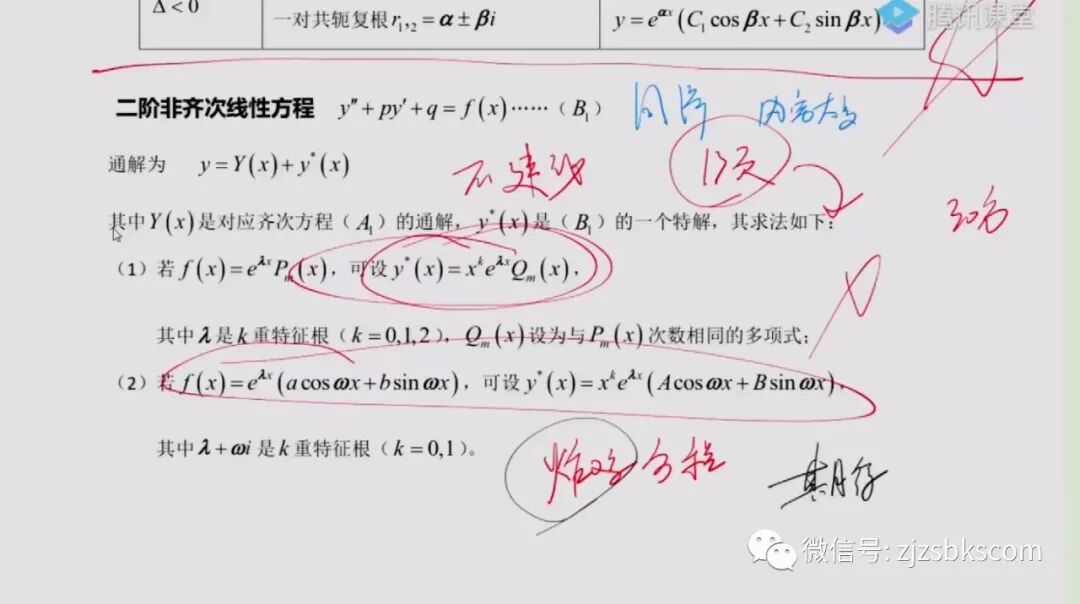 Δ < 0 一对共轭复根 r₁,₂ = α ± βi y = e^{αx}(C₁ cos βx + C₂ sin βx)
腾讯课堂
二阶非齐次线性方程 y″ + py′ + q = f(x)……（B₁）
内容大改
通解为 y = Y(x) + y*(x)
不建议
其中Y(x)是对应齐次方程（A₁）的通解，y*(x)是（B₁）的一个特解，其求法如下：
（1）若 f(x) = e^{λx}Pₘ(x)，可设 y*(x) = xᵏe^{λx}Qₘ(x)，
其中 λ 是 k 重特征根（k = 0,1,2），Qₘ(x) 设为与 Pₘ(x) 次数相同的多项式；
（2）若 f(x) = e^{λx}(a cos ωx + b sin ωx)，可设 y*(x) = xᵏe^{λx}(A cos ωx + B sin ωx)，
其中 λ + ωi 是 k 重特征根（k = 0,1）。
方程
微信号: zjzsbkscom